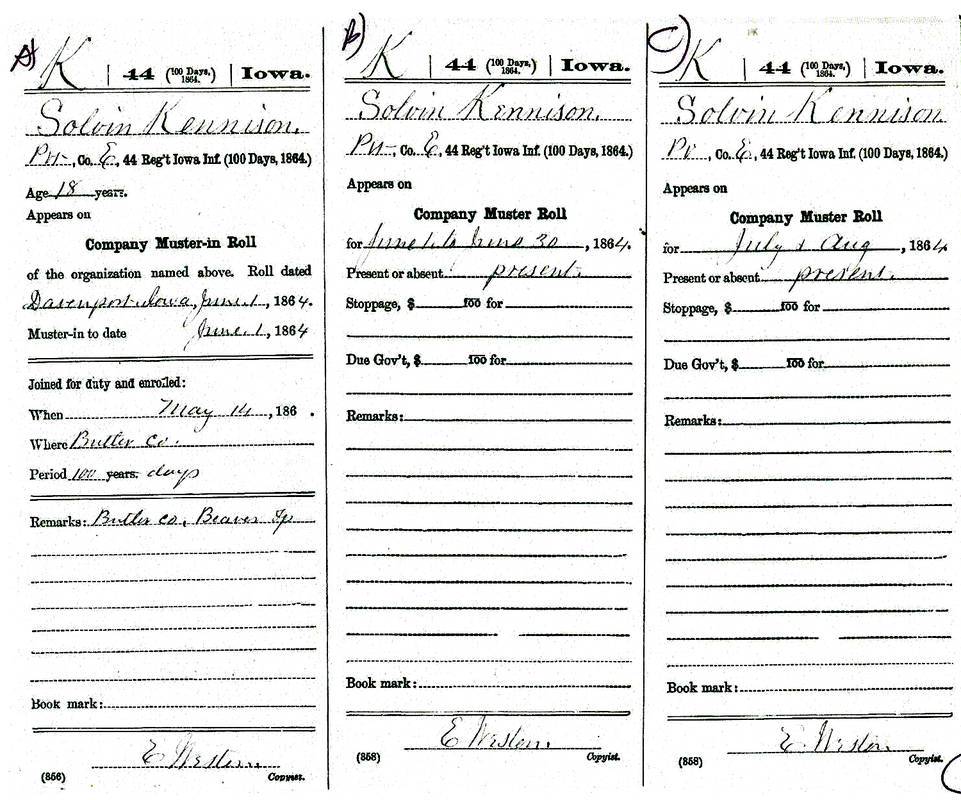 A)
K | 44 (100 Days, 1864.) | Iowa.
Solvin Kennison.
Pvt, Co. E, 44 Reg't Iowa Inf. (100 Days, 1864.)
Age 18 years.
Appears on
Company Muster-in Roll
of the organization named above. Roll dated
Davenport Iowa, June 1, 1864.
Muster-in to date June 1, 1864
Joined for duty and enrolled:
When May 14, 186 .
Where Butler Co.
Period 100 years. days
Remarks: Butler Co, Beaver Tp
Book mark:
E Weston.
(856) Copyist.
B)
K | 44 (100 Days, 1864.) | Iowa.
Solvin Kennison.
Pvt, Co. E, 44 Reg't Iowa Inf. (100 Days, 1864.)
Appears on
Company Muster Roll
for June 1 to June 30, 1864.
Present or absent present.
Stoppage, $ 100 for
Due Gov't, $ 100 for
Remarks:
Book mark:
E Weston.
(858) Copyist.
C)
K | 44 (100 Days, 1864.) | Iowa.
Solvin Kennison
Pv, Co. E, 44 Reg't Iowa Inf. (100 Days, 1864.)
Appears on
Company Muster Roll
for July & Aug, 1864.
Present or absent present.
Stoppage, $ 100 for
Due Gov't, $ 100 for
Remarks:
Book mark:
E Weston.
(858) Copyist.